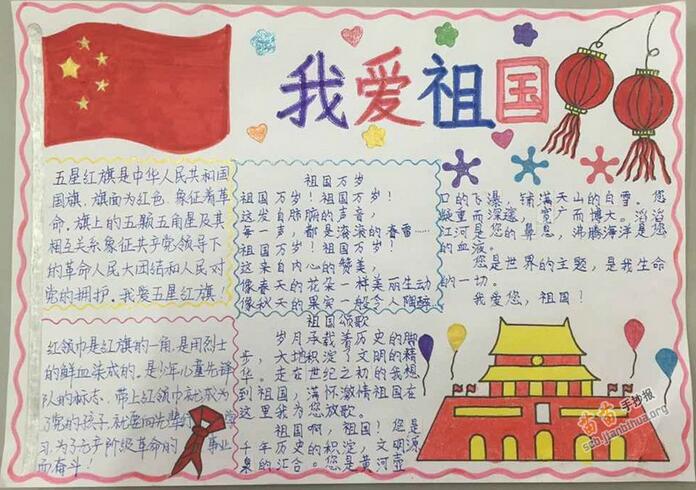 我爱祖国
五星红旗是中华人民共和国
国旗，旗面为红色，象征着革
命。旗上的五颗五角星及其
相互关系象征共产党领导下
的革命人民大团结和人民对
党的拥护。我爱五星红旗！
红领巾是红旗的一角，是用烈士
的鲜血染成的。是少年儿童先锋
队的标志。带上红领巾就成为
了党的孩子，就要向先辈的学
习，为了无产阶级革命的事业
而奋斗！
祖国万岁
祖国万岁！祖国万岁！
这发自肺腑的声音，
每一声，都是滚滚的春雷……
祖国万岁！祖国万岁！
这来自内心的赞美，
像春天的花朵一样美丽生动
像秋天的果实一般令人陶醉
祖国颂歌
岁月承载着历史的脚
步，大地积淀了文明的精
华。走在世纪之初的我想
到祖国，满怀激情祖国在
这里我为您放歌。
祖国啊，祖国！您是
千年历史的积淀，文明源
泉的汇合。您是黄河壶
口的飞瀑，铺满天山的白雪。您
凝重而深邃，宽广而博大。滔滔
江河是您的鼻息，沸腾海洋是您
的血液。
您是世界的主题，是我生命
的一切。
我爱您，祖国！
苗苗手抄报
scb.jianbihua.org